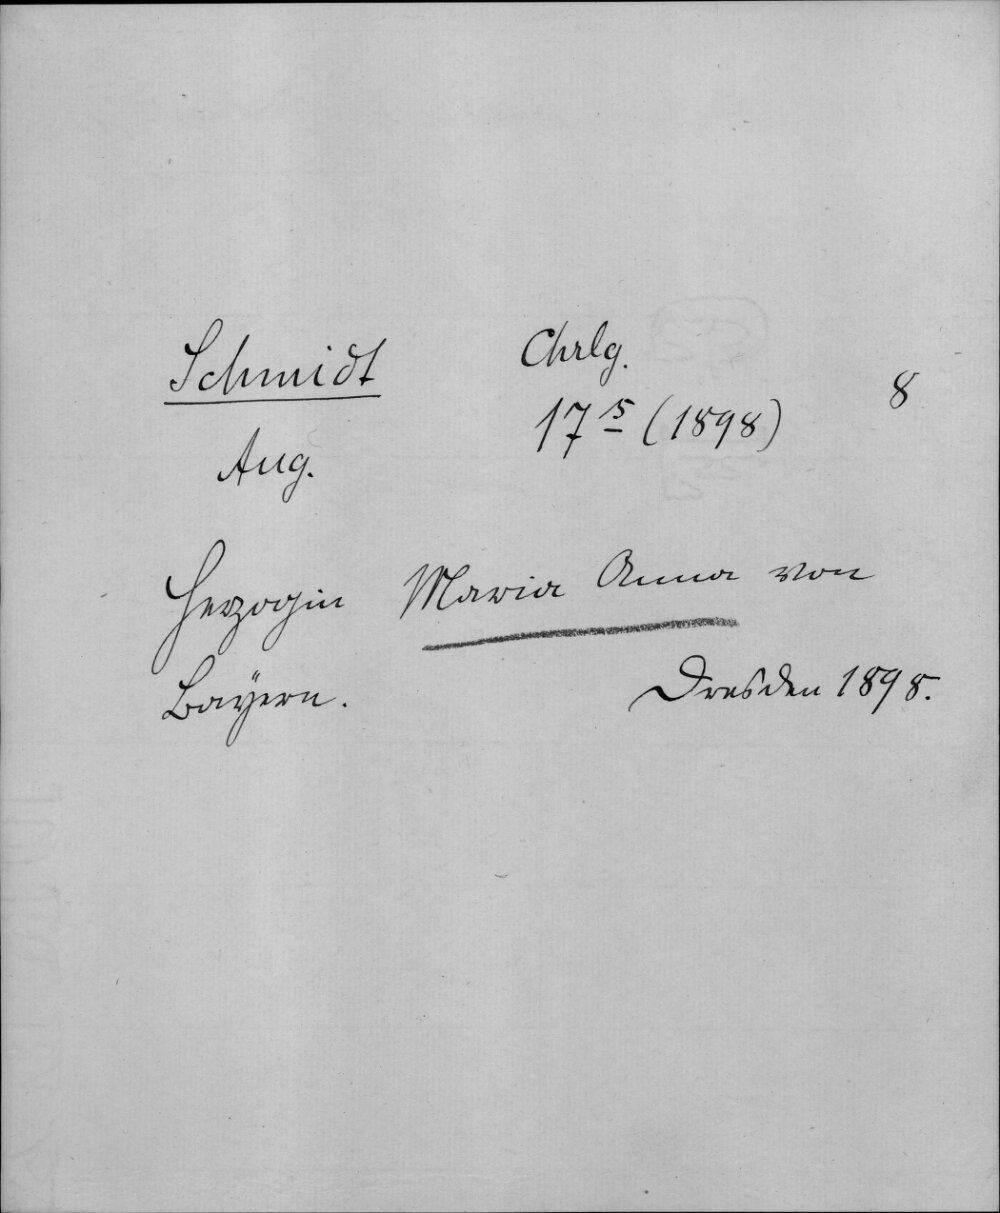 Schmidt
Aug.
Chrlg.
17⁵ (1898)
8
Herzogin Maria Anna von
Bayern.
Dresden 1898.